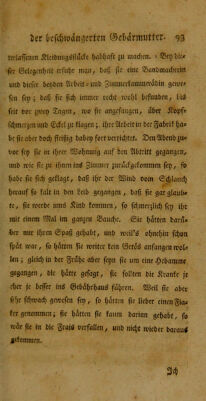 der beschwängerten Gebärmutter. 93
verlassenen Kleidungsstücke habhaft zu machen. Bey die-
ser Gelegenheit erfuhr man, daß sie eine Bandmacherin
und dieser beyden Arbeit- und Zimmerkammerädin gewe-
sen sey; daß sie sich immer recht wohl befunden, bis
seit vor zwey Tagen, wo sie angefangen, über Kopf-
schmerzen und Eckel zu klagen; ihre Arbeit in der Fabrik ha-
be sie aber doch fleissig dabey fort verrichtet. Den Abend zu-
vor sey sie in ihrer Wohnung auf den Abtritt gegangen,
und wie sie in ihns ins Zimmer zurückgekommen sey, so
habe sie sich geklagt, daß ihr der Wind vom Schlauch
herauf so kalt in den Leib gegangen, daß sie gar glaub-
te, sie werde ums Kind kommen, so schmerzlich sey ihr
mit einem Mal im ganzen Bauche. Sie hätten darü-
ber mit ihren Spaß gehabt, und weil's ohnehin schon
spät war, so hätten sie weiter kein Geräs anfangen wol-
len; gleich in der Frühe aber seyn sie um eine Hebamme
gegangen, die hätte gesagt, sie sollten die Kranke je
eher je besser ins Gebährhaus führen. Weil sie aber
sehr schwach gewesen sey, so hätten sie lieber einen Fia-
ker genommen; sie hätten sie kaum darien gehabt, so
wär sie in die Frais verfallen, und nicht wieder daraus
gekommen.
Ich